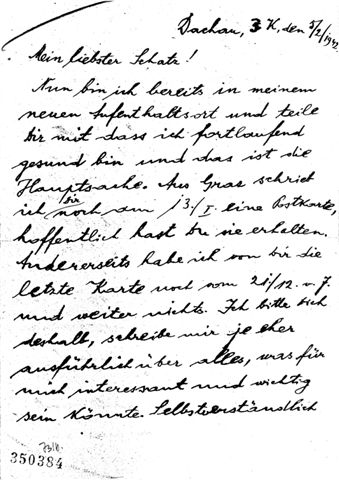 Dachau, 3 K, den 5/2/194
Mein liebster Schatz!
Nun bin ich bereits in meinem
neuen Aufenthaltsort und teile
Dir mit dass ich fortlaufend
gesund bin und das ist die
Hauptsache. Aus Graz schrieb
ich Dir noch am 13./I. eine Postkarte,
hoffentlich hast du sie erhalten.
Andererseits habe ich von dir die
letzte Karte noch vom 21/12. v. J.
und weiter nichts. Ich bitte dich
deshalb, schreibe mir je eher
ausführlich über alles, was für
mich interessant und wichtig
sein könnte. Selbstverständlich
350384